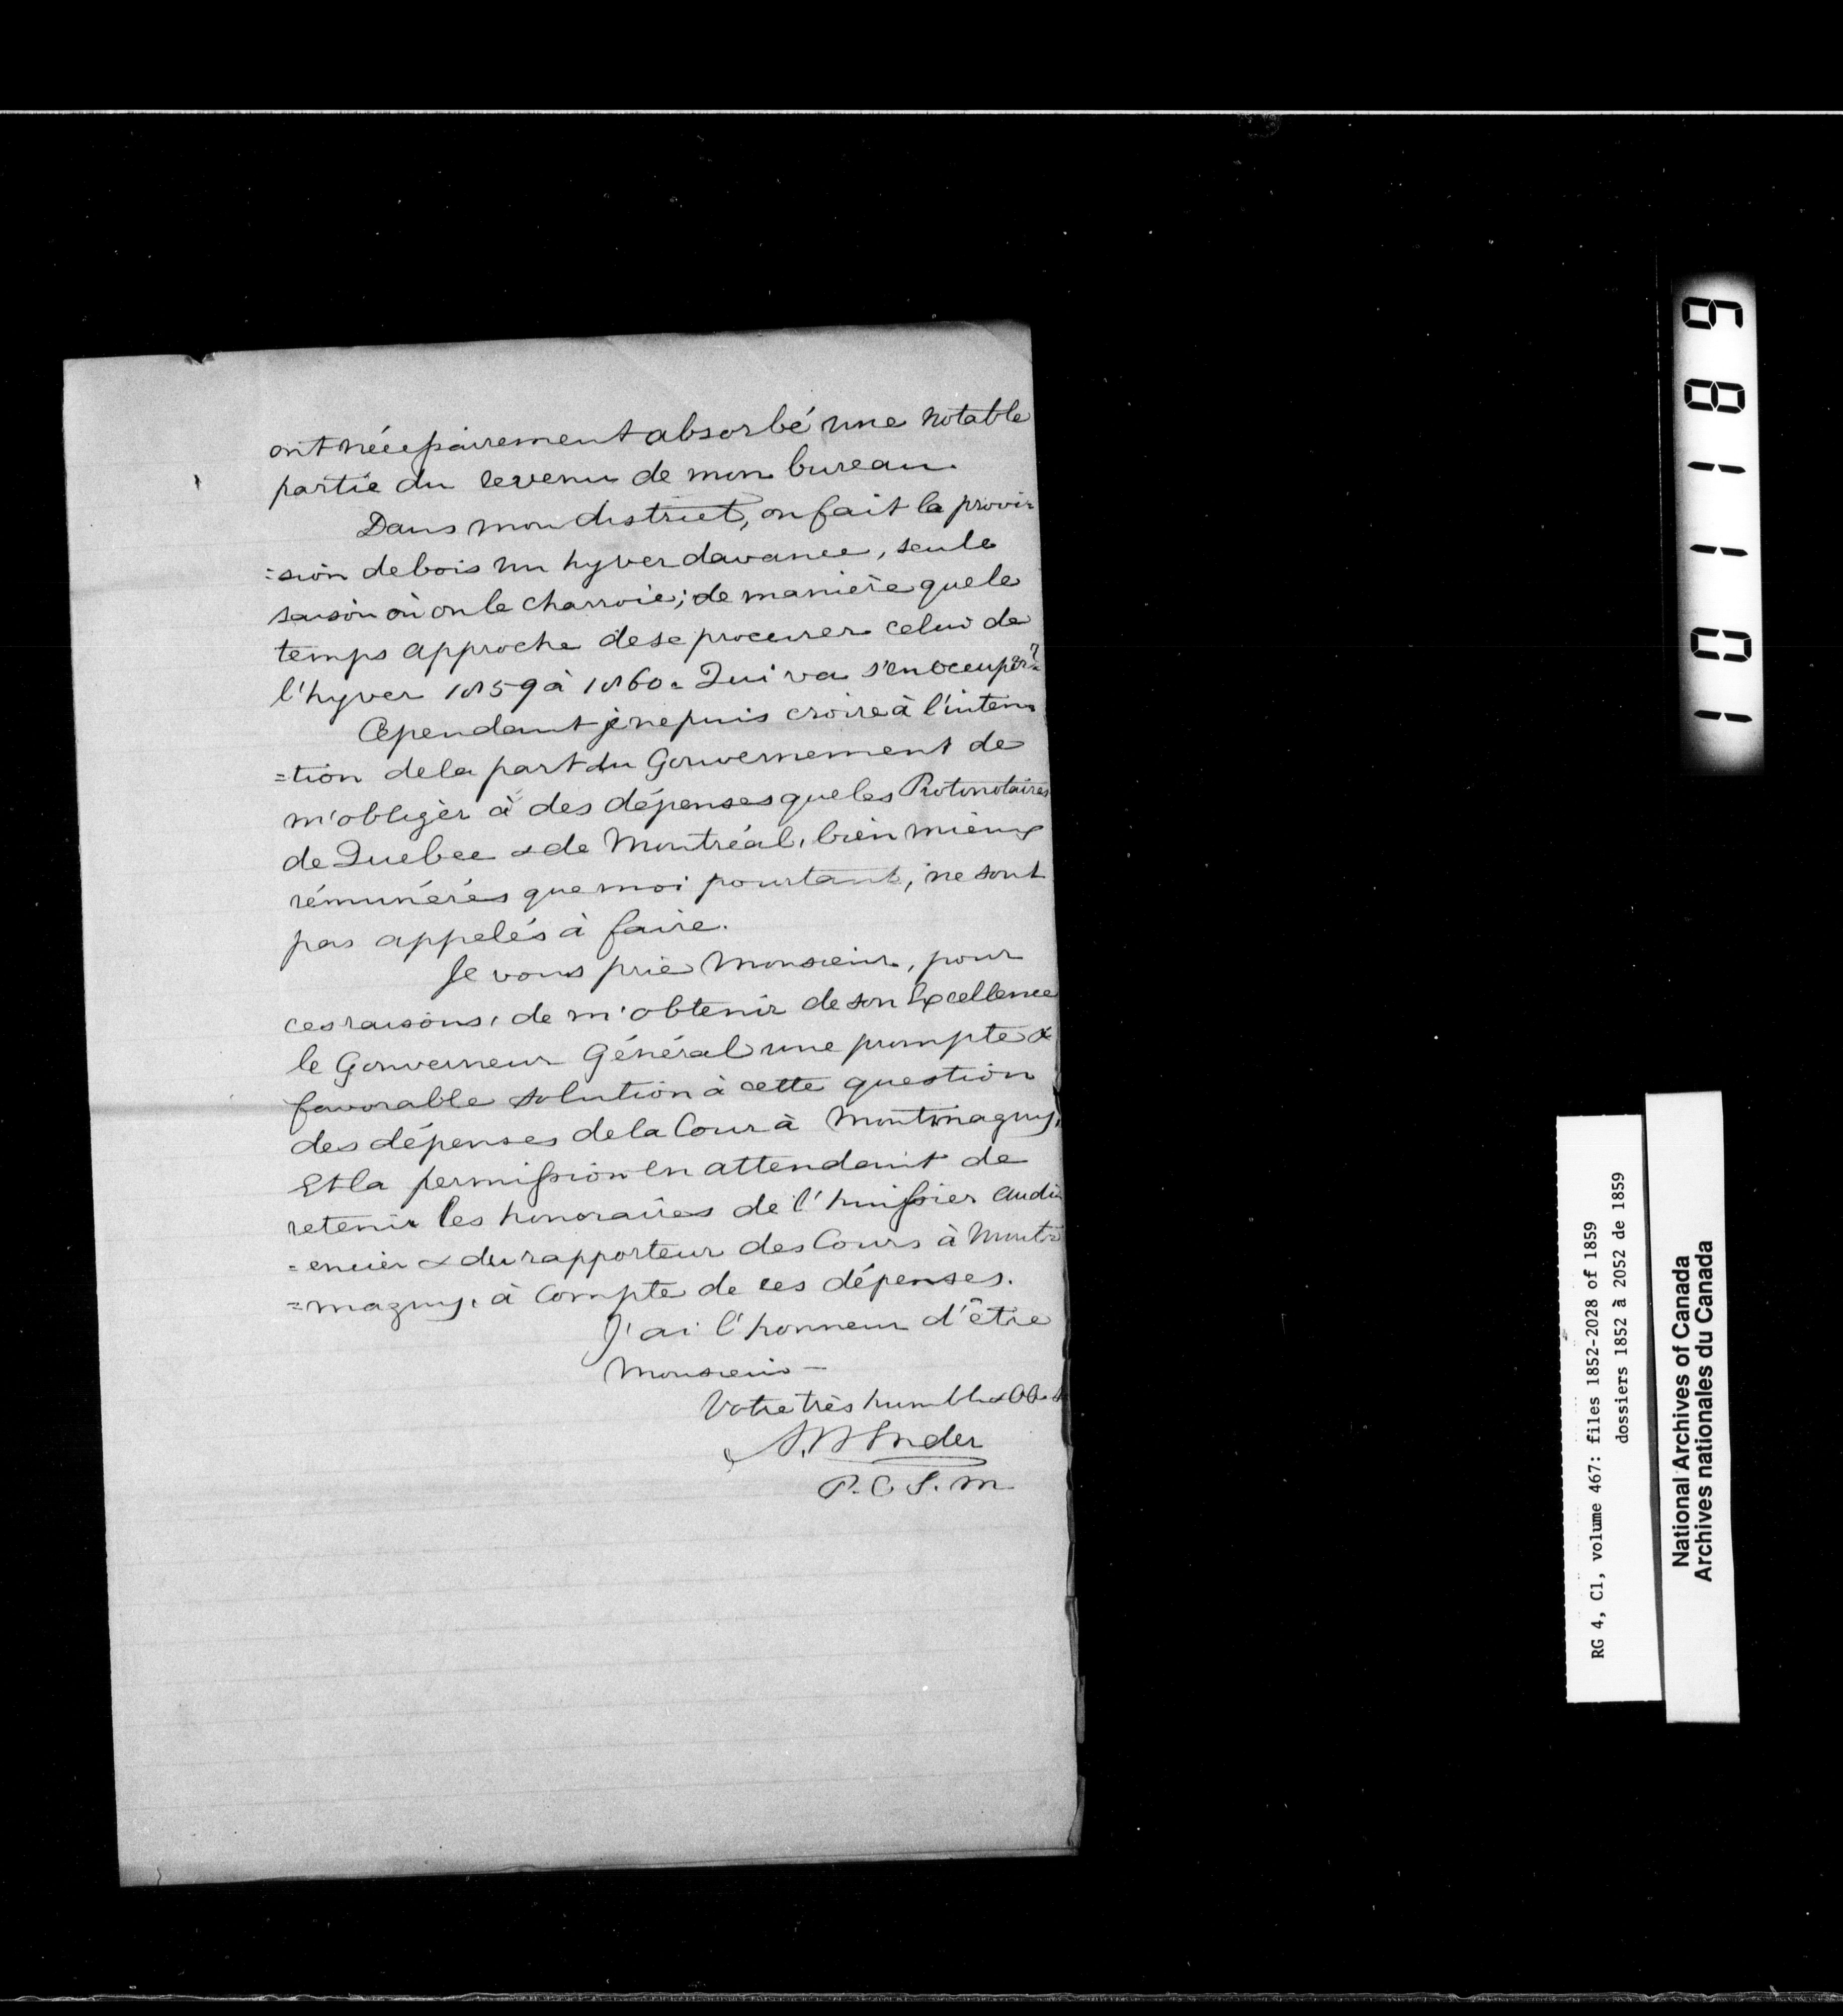 ont nécessairement absorbé une notable
partie du revenu de mon bureau.
Dans mon district, on fait la provi-
=sion de bois un hyver davance, seule
saison où on le charroie; de manière que le
temps approche de se procurer celui de
l'hyver 1859 à 1860. Qui va s'en occuper?
Cependant je ne puis croire à l'inten-
=tion de la part du Gouvernement de
m'obliger à des dépenses que les Protonotaires
de Quebec & de Montréal, bien mieux
rémunérés que moi pourtant, ne sont
pas appelés à faire.
Je vous prie Monsieur, pour
ces raisons, de m'obtenir de son Excellence
le Gouverneur Général une prompte &
favorable solution à cette question
des dépenses de la Cour à Montmagny,
Et la permission en attendant de
retenir les honoraires de l'huissier audi
=encier & du rapporteur des Cours à Mont=
=magny, à Compte de ces dépenses.
J'ai l'honneur d'être
Monsieur -
Votre très humble & Ob.
P. C. S. M
681101
RG 4, C1, volume 467: files 1852-2028 of 1859
dossiers 1852 à 2052 de 1859
National Archives of Canada
Archives nationales du Canada